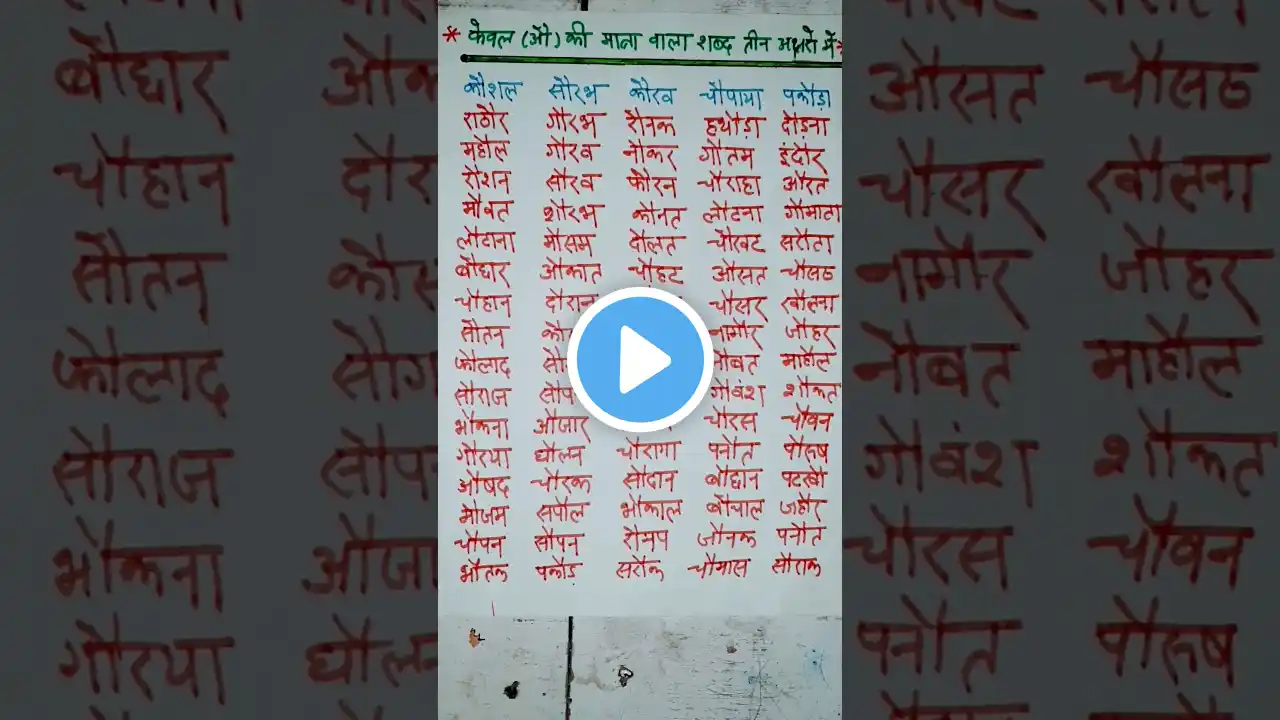 * केवल (औ) की मात्रा वाला शब्द तीन अक्षरो में *
कौशल सौरभ कौरव चौपाया पकौड़ा
राठौर गौरभ रौनक हथौड़ा दौड़ना
महौल गौरव नौकर गौतम इंदौर
रौशन सौरव फौरन चौराहा औरत
मौवत शौरभ कौनत लौटना गौमाता
लौटाना मौसम दौलत चौखट सरौता
बौद्यार औकात चौहट औसत चौसठ
चौहान दौरान चौसर खौलना
सौतन कौ नागौर जौहर
फौलाद सौ नौबत माहौल
सौराज सौप गौवंश शौकत
भौकना औजार चौरस चौवन
गौरया धौलन चौरागा पनौत पौरूष
औषद चौरक सौदान बौद्दान पटखौ
मौजम सपौल भौकाल बौचाल जहौर
चौपन सौपन रौमप जौनक पनौत
भौतक पकौड़ सरौक चौमास सौराक